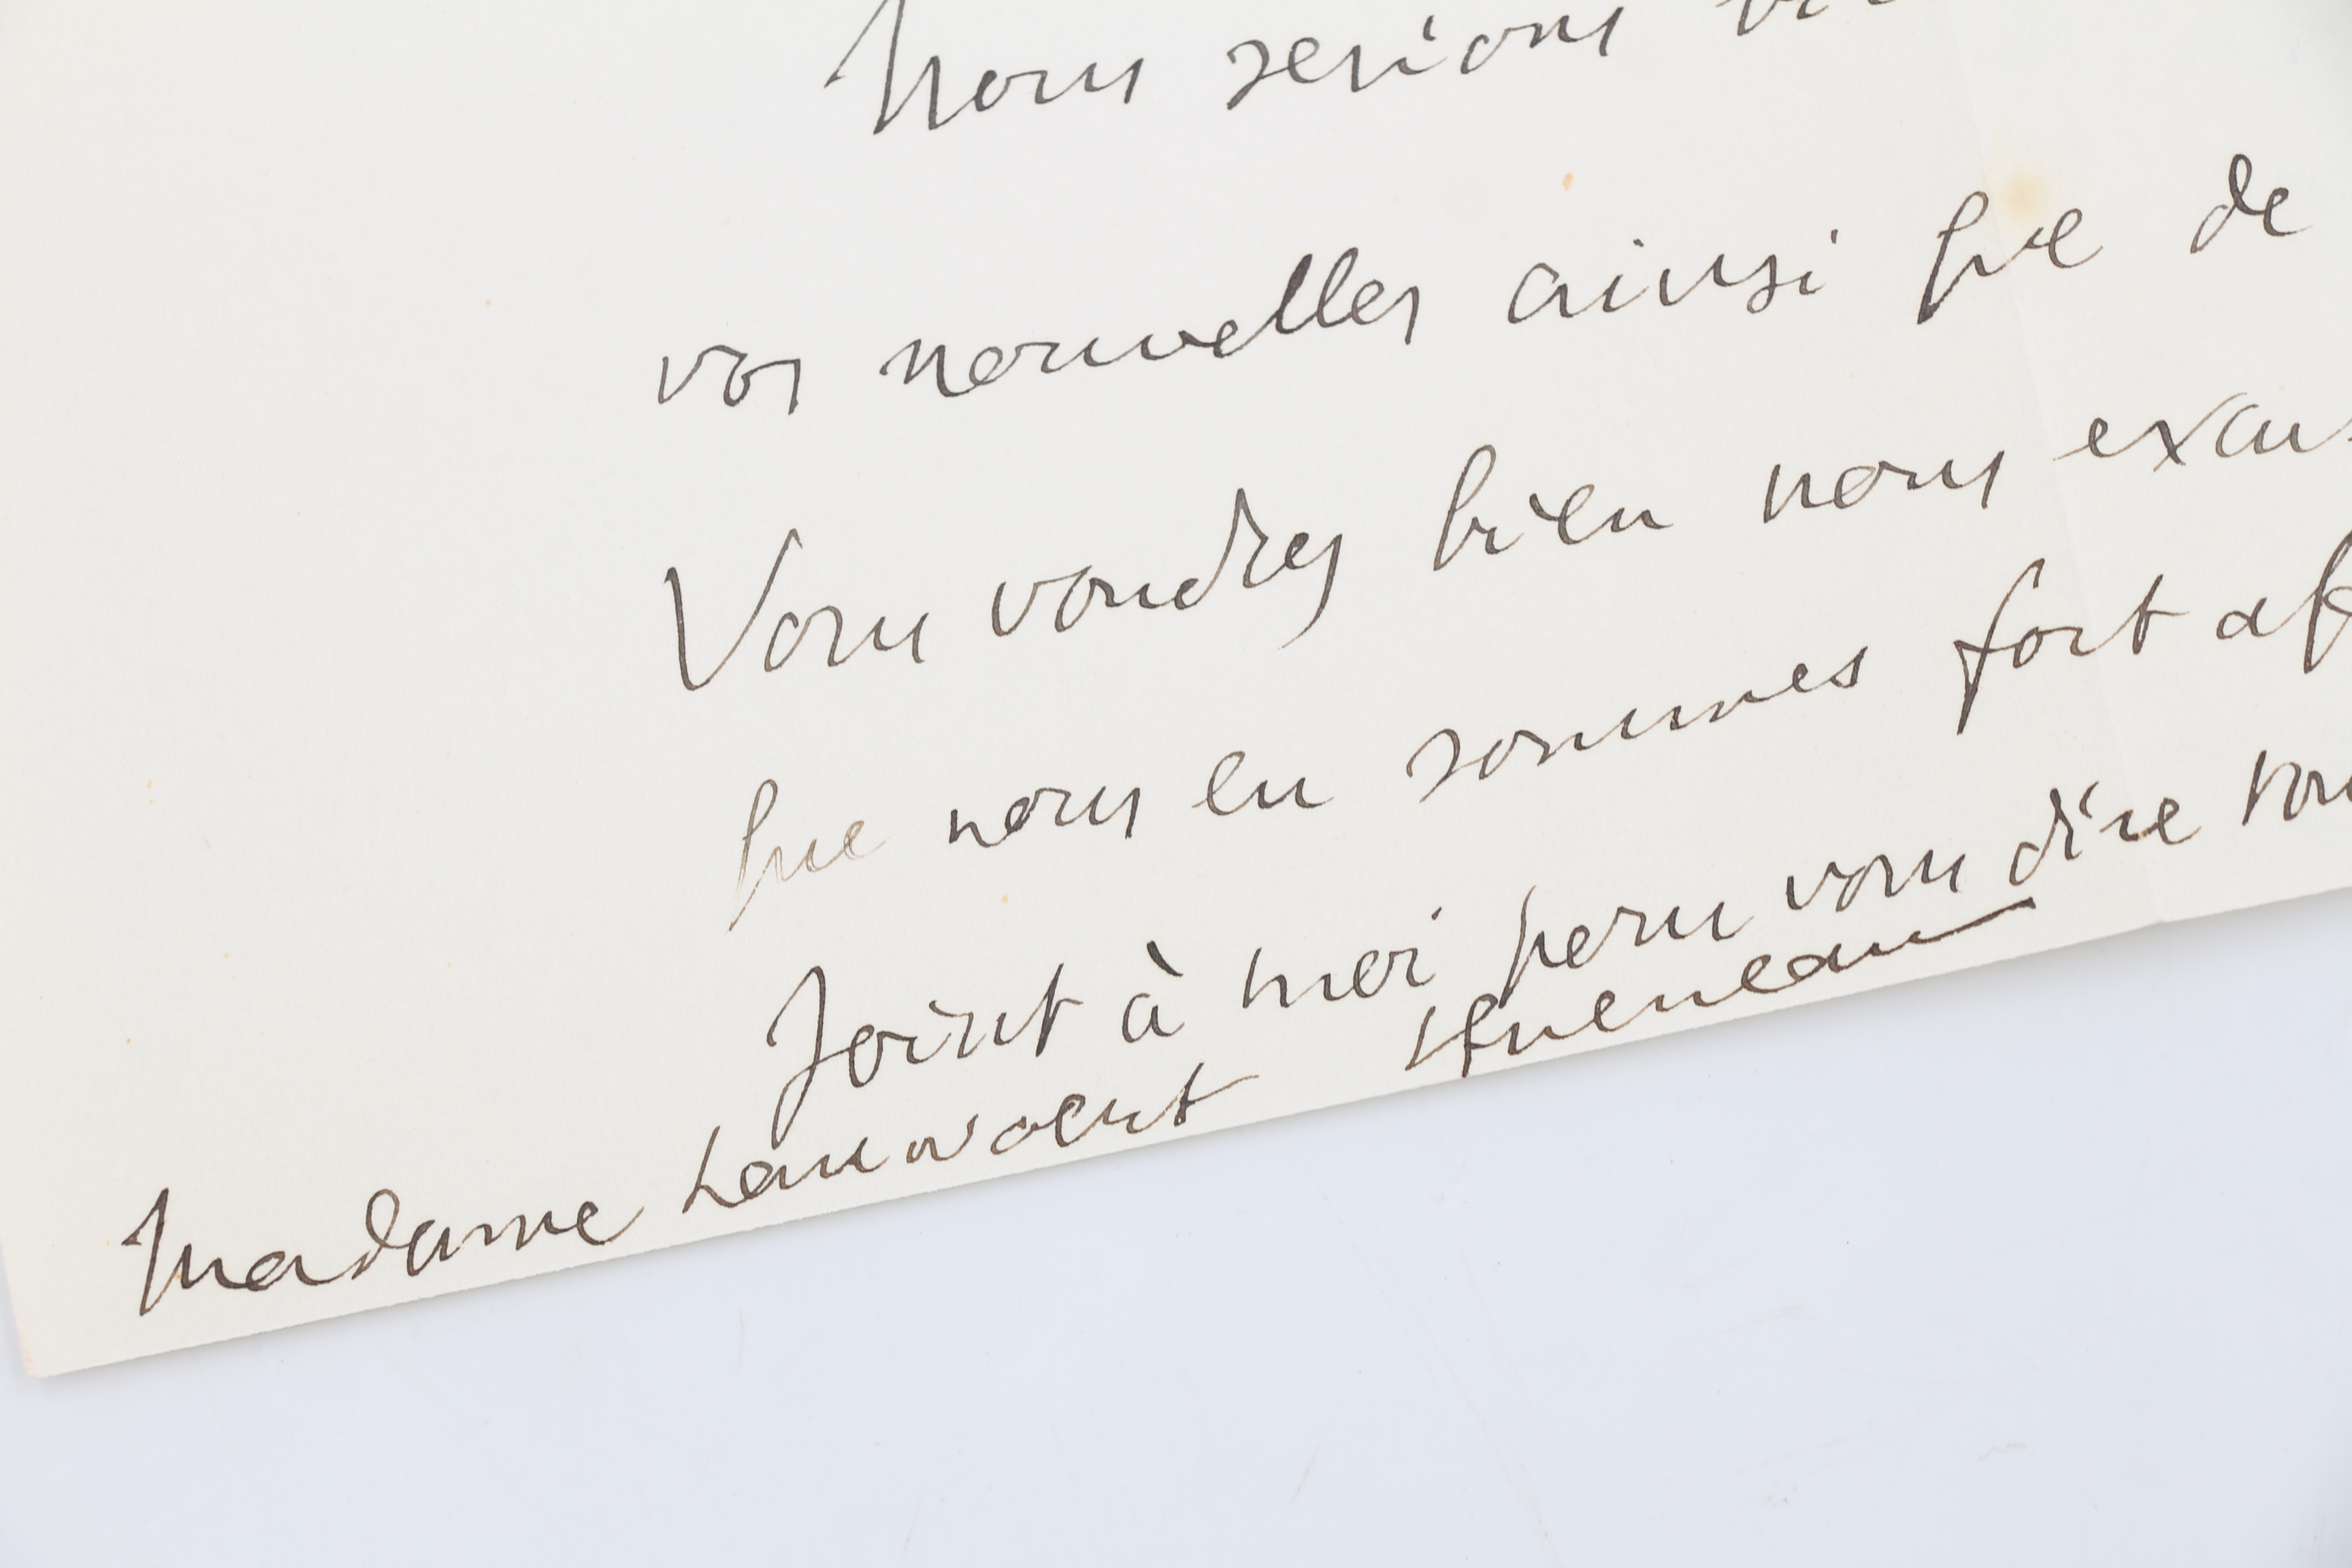 Nous serions
vos nouvelles ainsi que de
Vous voudrez bien nous excus
que nous en sommes fort af
Joint à moi pour vous dire
Queneau
Madame